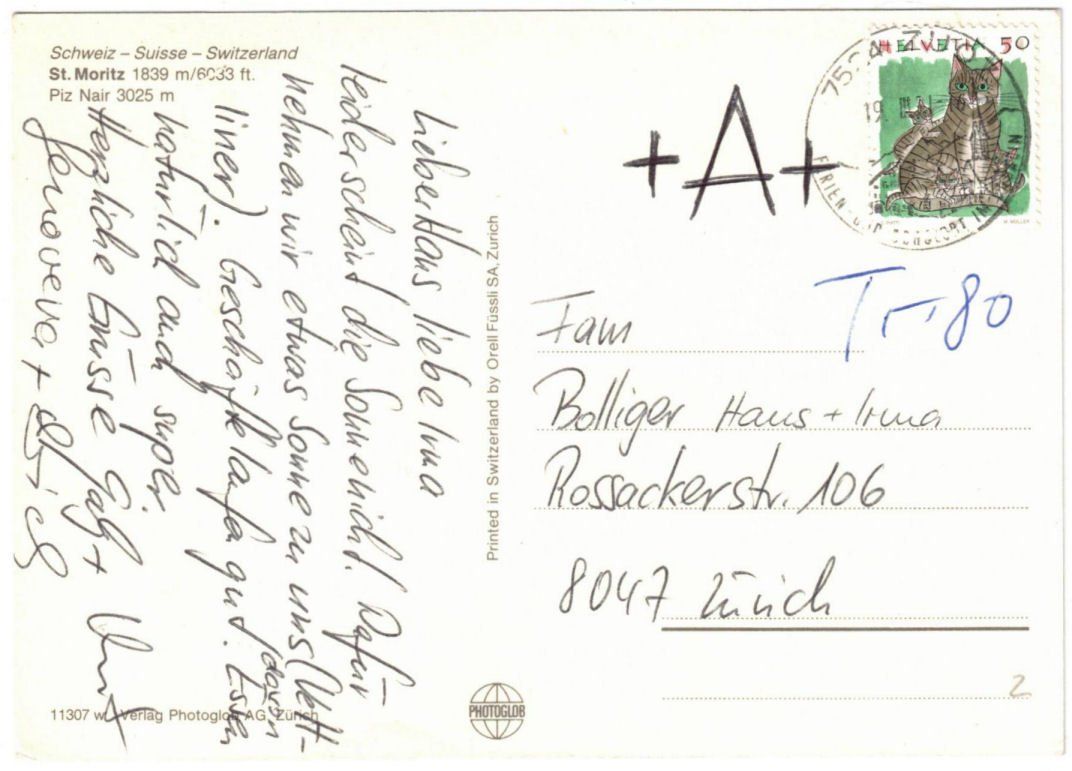 Schweiz – Suisse – Switzerland
St. Moritz 1839 m/6033 ft.
Piz Nair 3025 m
Lieber Hans liebe Irma
leider scheint die Sonne nicht. Dafür
nehmen wir etwas Sonne zu uns (Velt-
liner). Geschäfte laufa gut. Essen
natürlich auch super
Herzliche Grüsse Gaby + Kurt
Genoveva +
11307 w Verlag Photoglob AG, Zürich
Printed in Switzerland by Orell Füssli SA, Zurich
PHOTOGLOB
+A+
HELVETIA 50
7524 ZUOZ
19.
FERIEN- UND SPORTORT IM
T 80
Fam
Bolliger Hans + Irma
Rossackerstr. 106
8047 Zürich
2